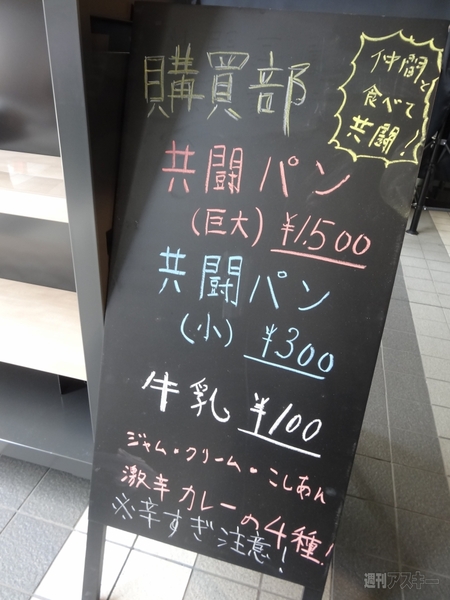 購買部
仲間と
食べて
共闘!
共闘パン
(巨大) ¥1,500
共闘パン
(小) ¥300
牛乳 ¥100
ジャム・クリーム・こしあん
激辛カレーの4種!
※辛すぎ注意!
週刊アスキー